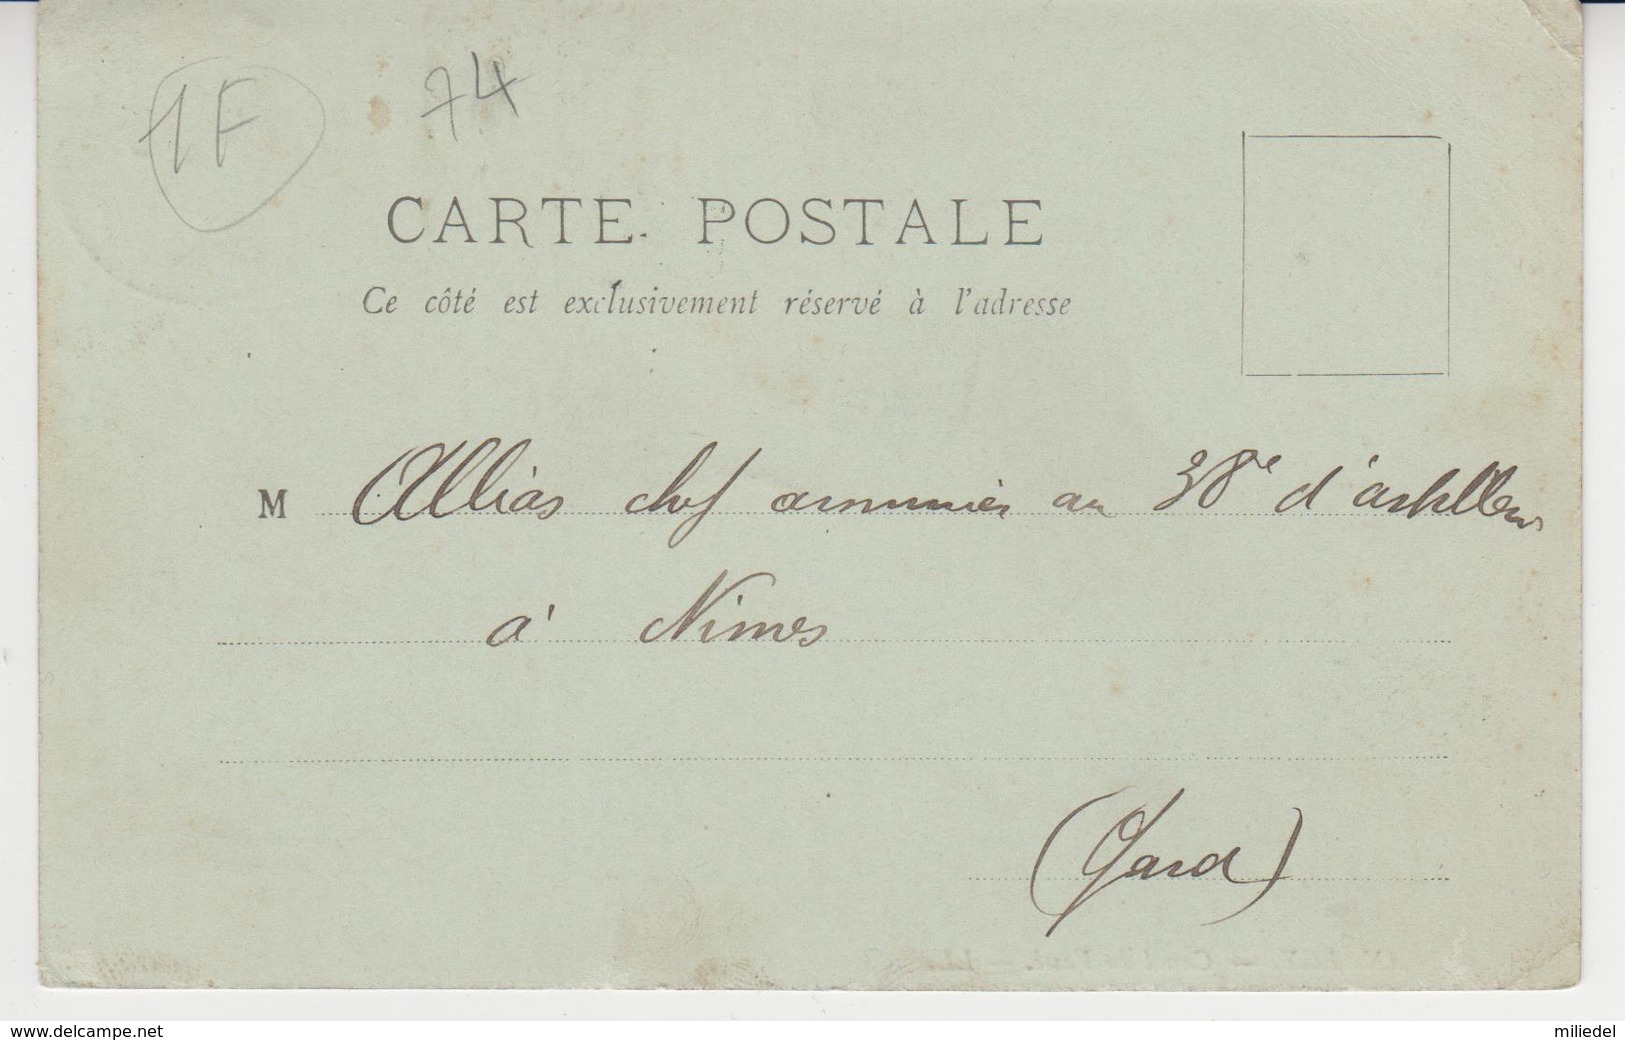 1F 74
CARTE POSTALE
Ce côté est exclusivement réservé à l'adresse
M Allias chef armurier au 38e d'artillerie
à Nimes
(Gard)
www.delcampe.net
miliedel